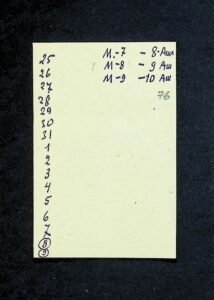 25
26
27
28
29
30
31
1
2
3
4
5
6
7
8
9
М.-7 - 8-Аш
М-8 - 9 Аш
М-9 -10 Аш
76